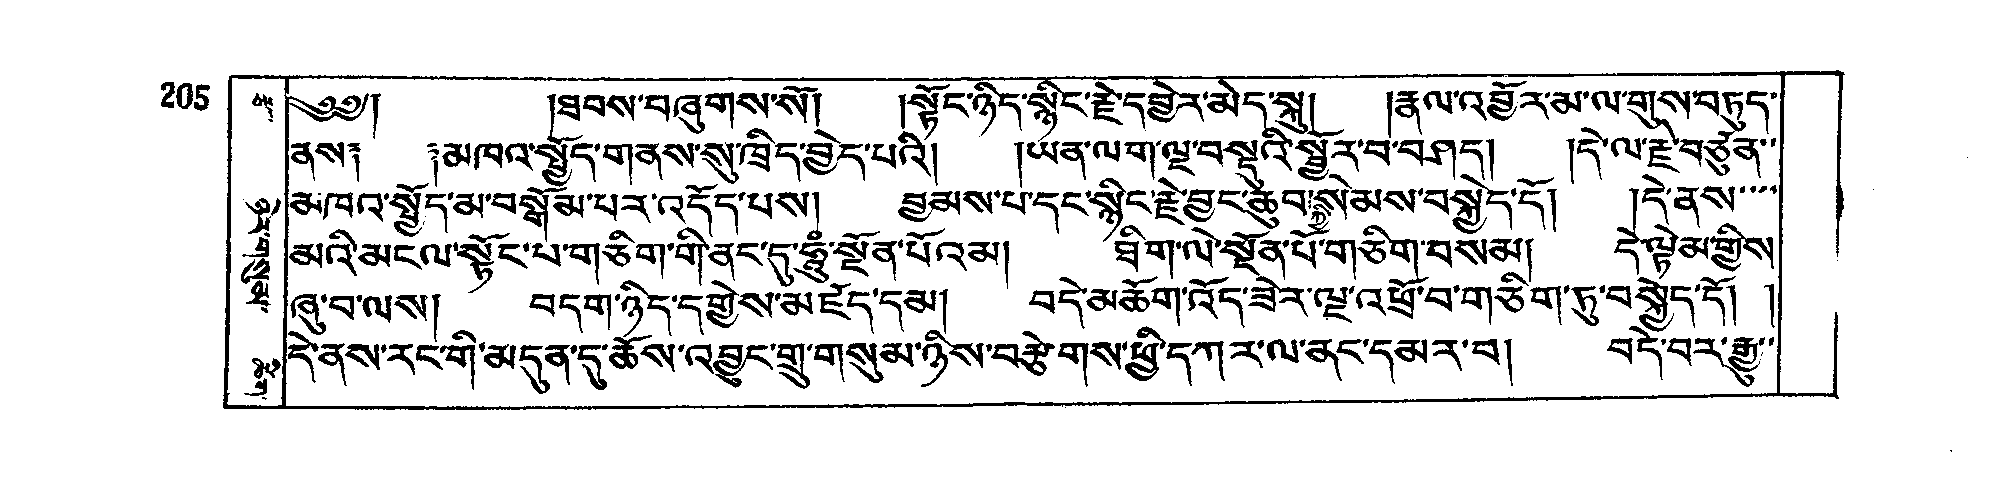 205
༄༅།། །ཐབས་བཞུགས་སོ། །སྟོང་ཉིད་སྙིང་རྗེ་དབྱེར་མེད་སྐུ། །རྣལ་འབྱོར་མ་ལ་གུས་བཏུད་
ནས༔ ༔མཁའ་སྤྱོད་གནས་སུ་ཁྲིད་བྱེད་པའི། །ཡན་ལག་ལྔ་བསྡུའི་སྦྱོར་བ་བཤད། །དེ་ལ་རྗེ་བཙུན་
མཁའ་སྤྱོད་མ་བསྒོམ་པར་འདོད་པས། བྱམས་པ་དང་སྙིང་རྗེ་བྱང་ཆུབ་སེམས་བསྐྱེད་དོ། །དེ་ནས་
མའི་མངལ་སྟོང་པ་གཅིག་གི་ནང་དུ་ཧཱུྃ་སྔོན་པོ་འམ། ཐིག་ལེ་སྔོན་པོ་གཅིག་བསམ། དེ་ལྟེམ་གྱིས
ཞུ་བ་ལས། བདག་ཉིད་དགྱེས་མཛད་དམ། བདེ་མཆོག་འོད་ཟེར་ལྔ་འཕྲོ་བ་གཅིག་ཏུ་བསྐྱེད་དོ། །
དེ་ནས་རང་གི་མདུན་དུ་ཆོས་འབྱུང་གྲུ་གསུམ་ཉིས་བརྩེགས་ཕྱི་དཀར་ལ་ནང་དམར་བ། བདེ་བར་རྒྱུ་